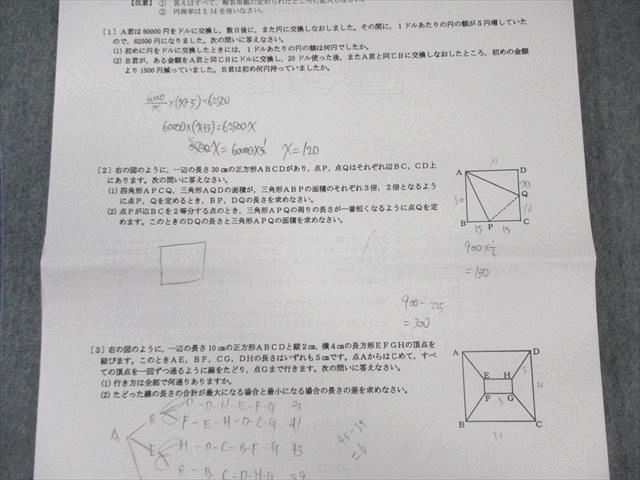 【注意】 ① 答えはすべて、解答用紙の定められたところに記入しなさい。
② 円周率は3.14を用いなさい。
［1］A君は60000円をドルに交換し、数日後に、また円に交換しなおしました。その間に、1ドルあたりの円の額が5円増していた
ので、62500円になりました。次の問いに答えなさい。
(1) 初めに円をドルに交換したときには、1ドルあたりの円の額は何円でしたか。
(2) B君が、ある金額をA君と同じ日にドルに交換し、20ドル使った後、またA君と同じ日に交換しなおしたところ、初めの金額
より1500円減っていました。B君は初め何円持っていましたか。
×(x+5)=62500
60000×(x+5)=62500x
x=120
［2］右の図のように、一辺の長さ30cmの正方形ABCDがあり、点P、点Qはそれぞれ辺BC、CD上
にあります。次の問いに答えなさい。
(1) 四角形APCQ、三角形AQDの面積が、三角形ABPの面積のそれぞれ3倍、2倍となるよう
に点P、Qを定めるとき、BP、DQの長さを求めなさい。
(2) 点Pが辺BCを2等分する点のとき、三角形APQの周りの長さが一番短くなるように点Qを定
めます。このときのDQの長さと三角形APQの面積を求めなさい。
A D
30 20
Q
10
B P C
15 15
900×1/6
=150
900-
=300
［3］右の図のように、一辺の長さ10cmの正方形ABCDと縦2cm、横4cmの長方形EFGHの頂点を
結びます。このときAE、BF、CG、DHの長さはいずれも5cmです。点Aからはじめて、すべ
ての頂点を一回ずつ通るように線をたどり、点Gまで行きます。次の問いに答えなさい。
(1) 行き方は全部で何通りありますか。
(2) たどった線の長さの合計が最大になる場合と最小になる場合の長さの差を求めなさい。
A D
E H
F G
B C
10
C-D-H-E-F-G 45
B
F-E-H-D-C-G 41
A
E H-D-C-B-F-G 43
F-B-C-D-H-G 39